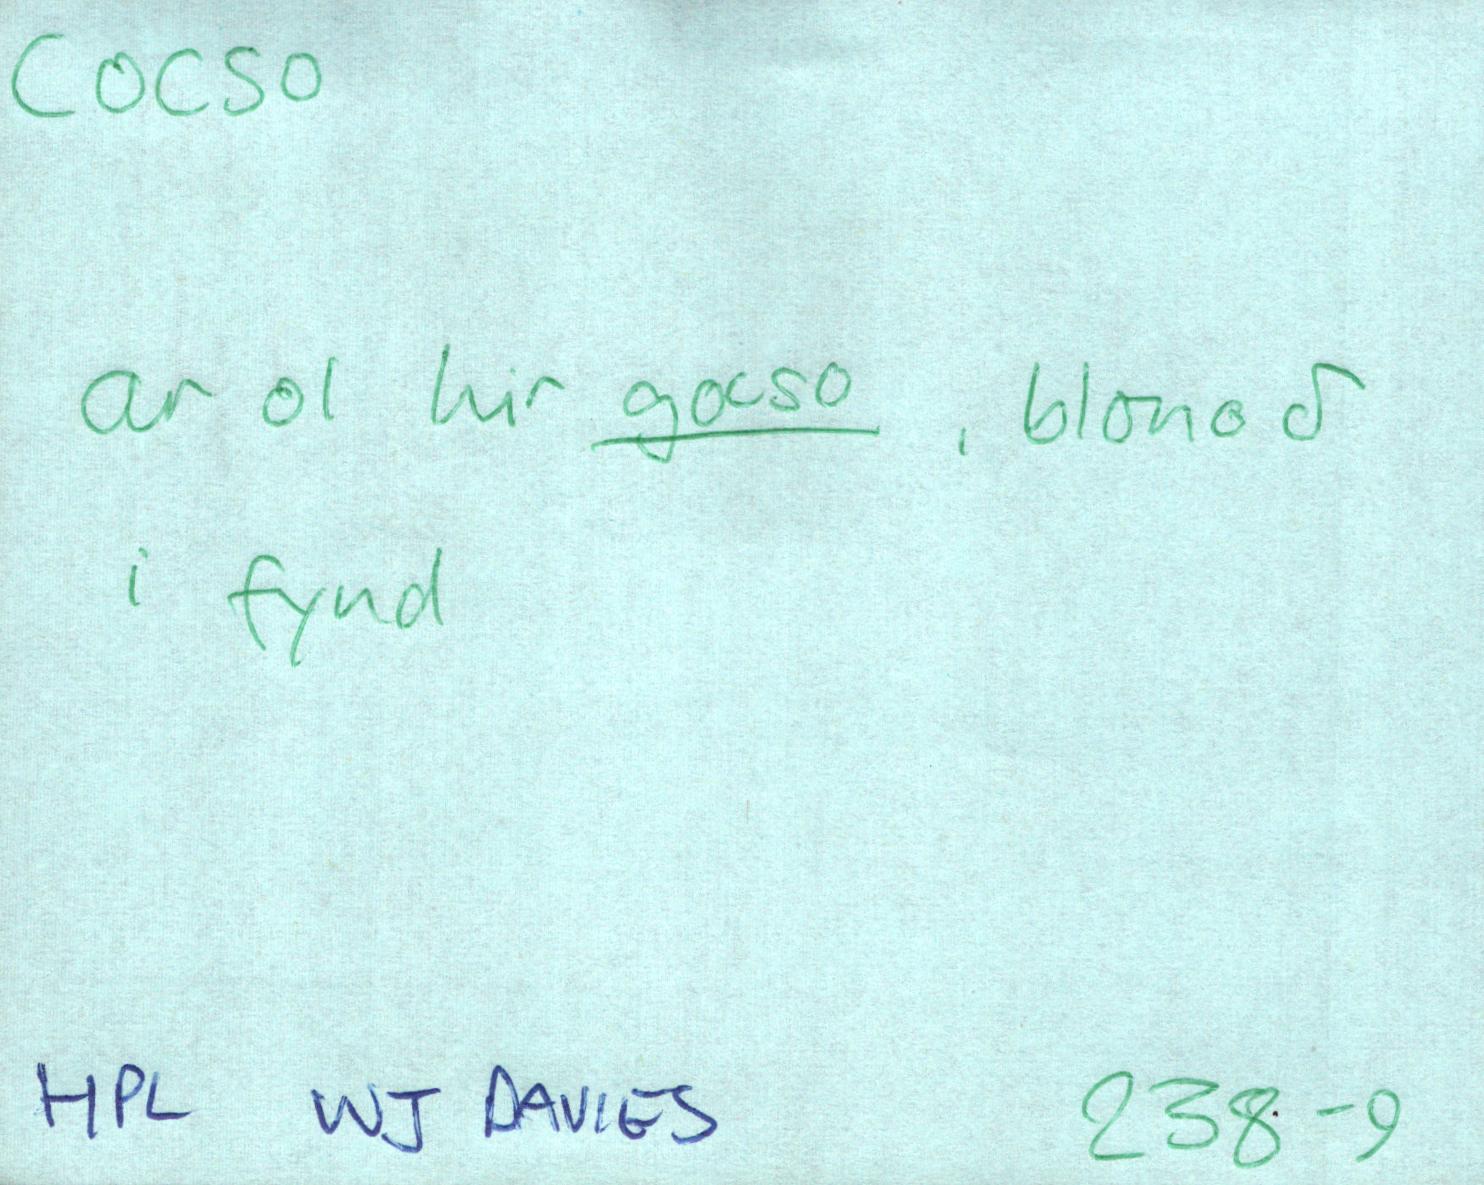 Cocso
ar ol hir gocso, blonoδ
i fynd
HPL WJ DAVIES 238-9